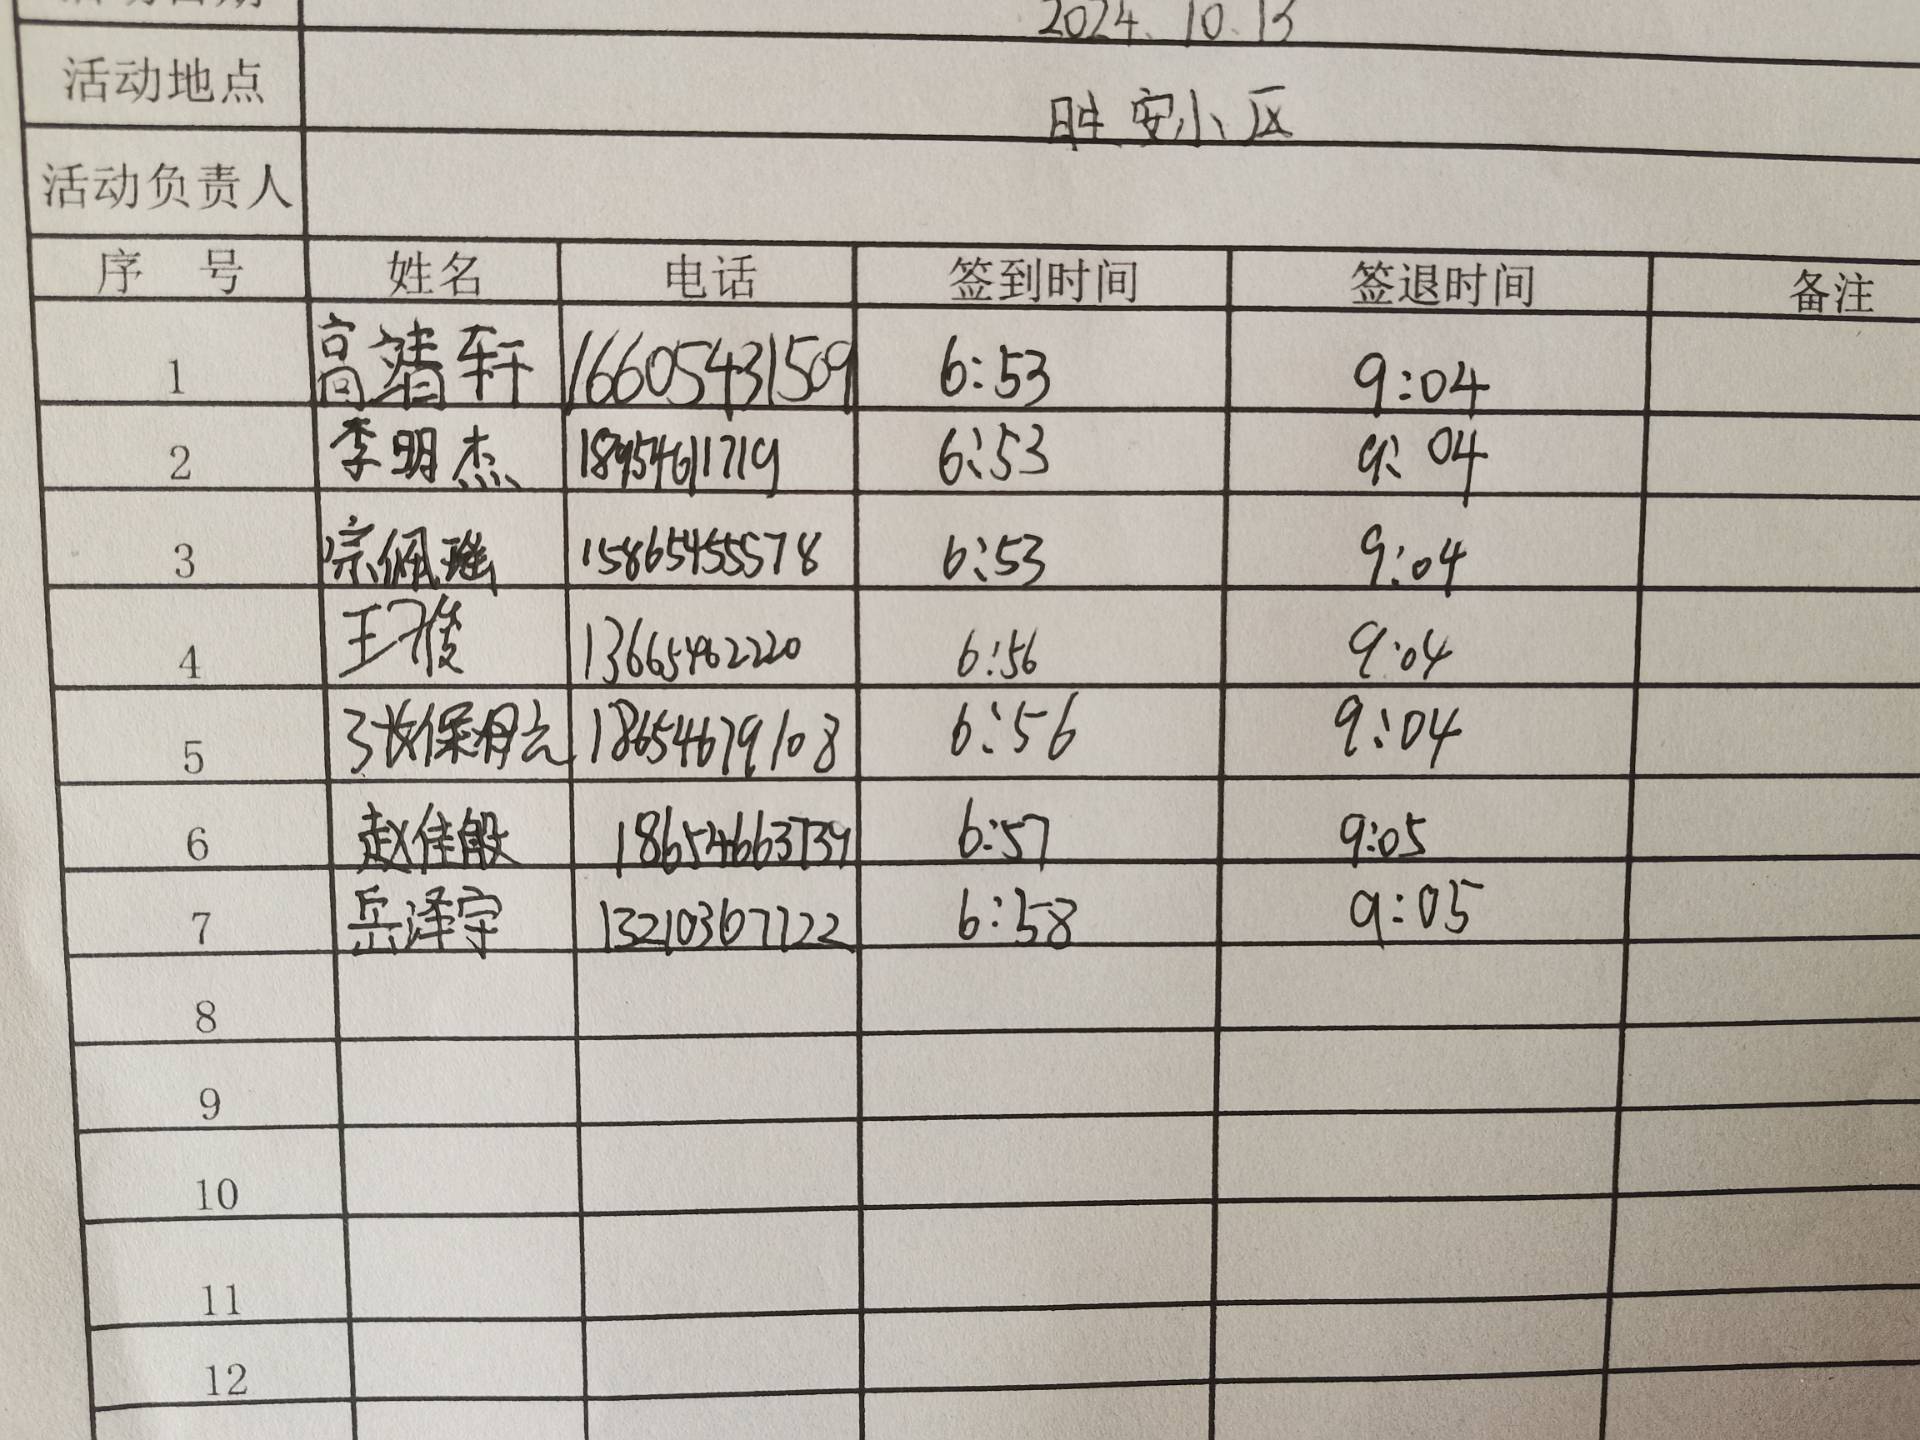 活动日期 2024.10.13
活动地点 胜安小区
活动负责人
序 号 姓名 电话 签到时间 签退时间 备注
1 高靖轩 16605431509 6:53 9:04
2 李明杰 18954611719 6:53 9:04
3 宗佩瑶 15865455578 6:53 9:04
4 王俊 13665462220 6:56 9:04
5 张保月云 18654679108 6:56 9:04
6 赵佳殷 18654663739 6:57 9:05
7 岳泽宇 13210367122 6:58 9:05
8
9
10
11
12